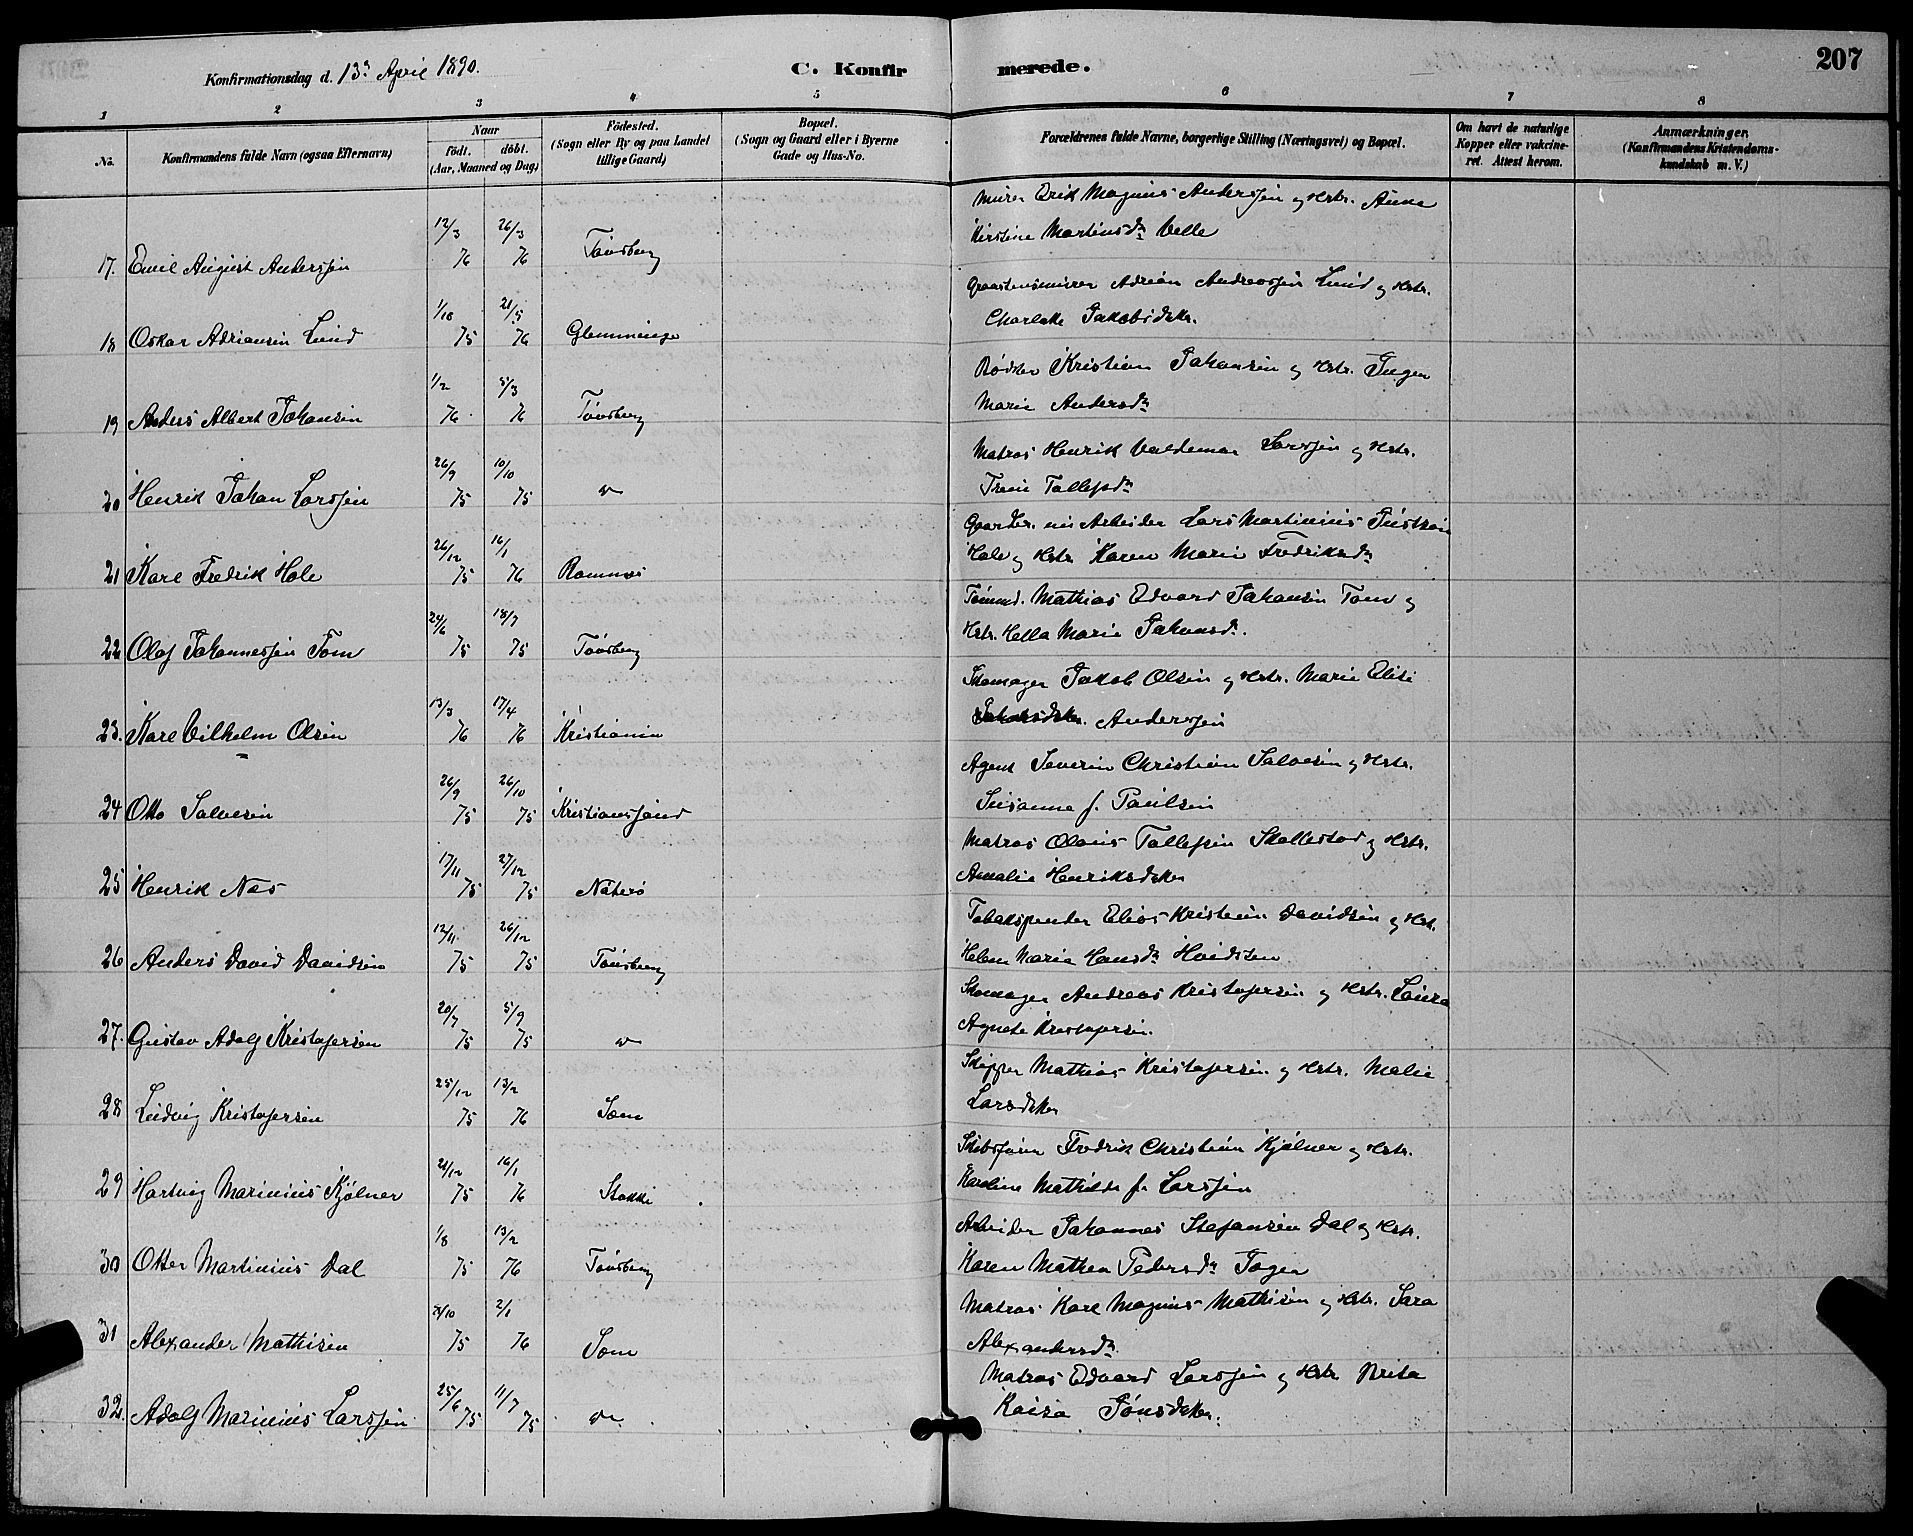 207
Konfirmationsdag d. 13de April 1890.
C. Konfirmerede.
1 2 3 4 5 6 7 8
No.
Konfirmandens fulde Navn (ogsaa Efternavn)
Naar
födt. döbt.
(Aar, Maaned og Dag)
Födested.
(Sogn eller By og paa Landet
tillige Gaard)
Bopæl.
(Sogn og Gaard eller i Byerne
Gade og Hus-No.
Forældrenes fulde Navne, borgerlige Stilling (Næringsvei) og Bopæl.
Om havt de naturlige
Kopper eller vakcine-
ret. Attest herom.
Anmærkninger.
(Konfirmandens Kristendoms-
kundskab m. V.)
17. Emil August Anderssen 12/3 76 26/3 76 Tönsberg
Murer Erik Magnus Anderssen og Hstr. Anne
Kirstine Martinsdr. Velle
18 Oskar Adriansen Lund 1/10 75 21/5 76 Glemminge
Graastensmurer Adrian Andreassen Lund og Hstr.
Charlotte Jakobsdtr.
19 Anders Albert Johansen 1/2 76 5/3 76 Tönsberg
Kristian Johansen og Hstr. Inger
Marie Andersdr.
20 Henrik Johan Larssen 26/9 75 10/10 75 "
Matros Henrik Valdemar Larssen og Hstr.
Trine Tollefsdr.
21 Karl Fredrik Hole 26/12 75 16/1 76 Ramnæs
Gaardbr. nu Arbeider Lars Martinius
Hole og Hstr. Karen Marie Fredriksdr.
22 Olaf Johannessen Tom 24/6 75 18/7 75 Tönsberg
Tömmd. Mathias Edvard Johansen Tom og
Hstr. Hella Marie Johansdr.
23. Karl Vilhelm Olsen 13/3 76 17/4 76 Kristiania
Skomager Jakob Olsen og Hstr. Marie Elise
Anderssen
24 Otto Salvesen 26/9 75 26/10 75 Kristianssund
Agent Severin Christian Salvesen og Hstr.
Susanne f. Paulsen
25 Henrik Næs 17/11 75 27/12 75 Nöterö
Matros Olaus Tollefsen Skallestad og Hstr.
Amalie Henriksdtr
26 Anders David Davidsen 12/11 75 26/12 75 Tönsberg
Tobakspinder Elias Kristian Davidsen og Hstr.
Helene Marie Hansdr. Hvidsten
27. Gustav Adolf Kristofersen 20/7 75 5/9 75 "
Skomager Andreas Kristofersen og Hstr. Laura
Agnete Kristofersen.
28 Ludvig Kristofersen 25/12 75 13/2 76 Sæm
Skipper Mathias Kristofersen og Hstr. Malie
Larsdtr
29 Hartvig Marinius Kjölner 21/12 75 16/1 76 Stokke
Skibsförer Fredrik Christian Kjölner og Hstr.
Karoline Mathilde f. Larssen
30 Otter Martinius Dal 1/8 75 13/2 76 Tönsberg
Arbeider Johannes Stefansen Dal og Hstr.
Karen Mathea Pedersdr.
31 Alexander Mathisen /10 75 2/1 76 Sem
Matros Karl Magnus Mathisen og Hstr. Sara
Alexandersdr.
32. Adolf Marinius Larssen 25/6 75 11/7 75 "
Matros Edvard Larssen og Hstr. Brita
Kaisa Jönsdtr.